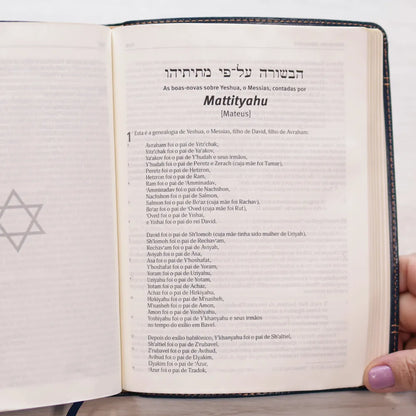 הבשורה על־פי מתיתיהו
As boas-novas sobre Yeshua, o Messias, contadas por
Mattityahu
[Mateus]
1 Esta é a genealogia de Yeshua, o Messias, filho de David, filho de Avraham:
Avraham foi o pai de Yitz'chak,
Yitz'chak foi o pai de Ya'akov,
Ya'akov foi o pai de Y'hudah e seus irmãos,
Y'hudah foi o pai de Peretz e Zerach (cuja mãe foi Tamar),
Peretz foi o pai de Hetzron,
Hetzron foi o pai de Ram,
Ram foi o pai de 'Amminadav,
'Amminadav foi o pai de Nachshon,
Nachshon foi o pai de Salmon,
Salmon foi o pai de Bo'az (cuja mãe foi Rachav),
Bo'az foi o pai de 'Oved (cuja mãe foi Rut),
'Oved foi o pai de Yishai,
e Yishai foi o pai do rei David.
David foi o pai de Sh'lomoh (cuja mãe tinha sido mulher de Uriyah),
Sh'lomoh foi o pai de Rechav'am,
Rechav'am foi o pai de Aviyah,
Aviyah foi o pai de Asa,
Asa foi o pai de Y'hoshafat,
Y'hoshafat foi o pai de Yoram,
Yoram foi o pai de Uziyahu,
Uziyahu foi o pai de Yotam,
Yotam foi o pai de Achaz,
Achaz foi o pai de Hizkiyahu,
Hizkiyahu foi o pai de M'nasheh,
M'nasheh foi o pai de Amon,
Amon foi o pai de Yoshiyahu,
Yoshiyahu foi o pai de Y'khanyahu e seus irmãos
no tempo do exílio em Bavel.
Depois do exílio babilônico, Y'khanyahu foi o pai de Sh'altiel,
Sh'altiel foi o pai de Z'rubavel,
Z'rubavel foi o pai de Avihud,
Avihud foi o pai de Elyakim,
Elyakim foi o pai de 'Azur,
'Azur foi o pai de Tzadok,